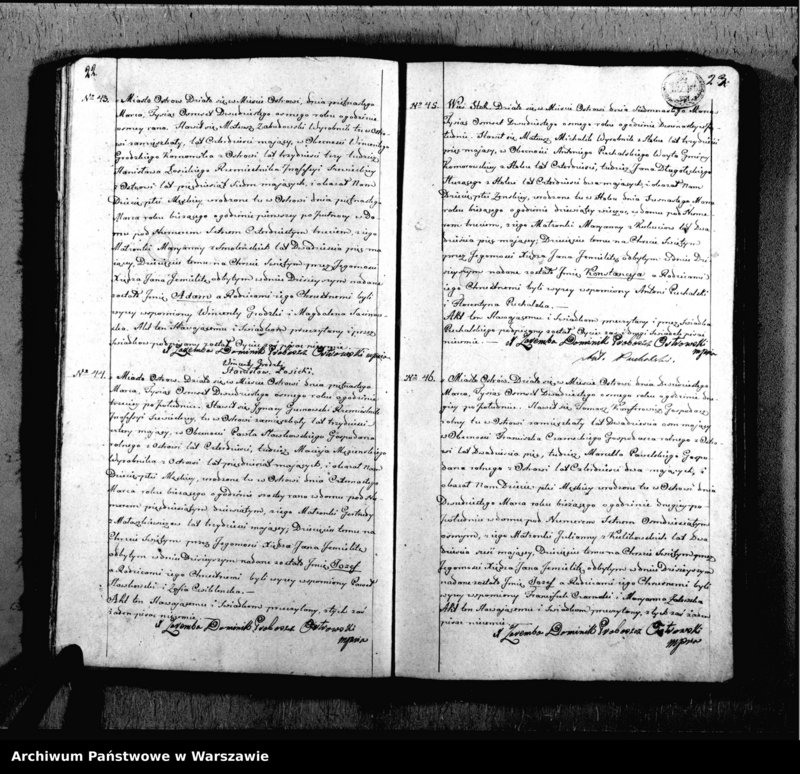 22
No 43. Miasto Ostrow. Działo się w Mieście Ostrowi, dnia piętnastego
Marca, Tysiąc Osmset Dwudziestego osmego roku o godzinie
osmey rano. Stawił się Mateusz Wyrobnik tu w Ostro-
wi zamieszkały, lat Czterdzieści maiący, w Obecności Wincentego
Grodzkiego Komornika z Ostrowi lat trzydzieści trzy tudzież
Stanisława Łosickiego Rzemieślnika Professyi Szewieckiey
z Ostrowi lat pięćdziesiąt Siedm maiących, i okazał Nam
Dziecię płci Męskiey, urodzone tu w Ostrowi dnia piętnastego
Marca roku bieżącego o godzinie pierwszy po północy w Do-
mu pod Numerem Setnem Czterdziestym trzecim, z iego
Małżonki Maryanny z lat Dwadzieścia pięć ma-
iącey, Dziecięciu temu na Chrzcie Swiętym przez Jegomości
Xiędza Jana Jemielitę odbytym w dniu Dzisieyszym nadane
zostało Imię Adam a Rodzicami iego Chrzestnemi byli
wyżey wspomniony Wincenty Grodzki i Magdalena
Akt ten Stawaiącemu i Swiadkom przeczytany i przez
Swiadków podpisany został Oyciec zaś pisać nieumie
X Zaremba Dominik Proboszcz Ostrowski mpria
Wincenty Grodzki
Stanisław Łosicki.
No 44. Miasto Ostrow. Działo się w Mieście Ostrowi dnia piętnastego
Marca, Tysiąc Osmset Dwudziestego osmego roku o godzinie
trzeciey po południu. Stawił się Ignacy Rzemieślnik
Professyi Szewieckiey, tu w Ostrowi zamieszkały lat trzydzieści
cztery maiący, w Obecności Pawła Stawkowskiego Gospodarza
rolnego z Ostrowi lat Czterdzieści, tudzież Macieja
Wyrobnika z Ostrowi lat pięćdziesiąt maiących, i okazał Nam
Dziecię płci Męskiey, urodzone tu w Ostrowi dnia Czternastego
Marca roku bieżącego o godzinie szosty rano w domu pod Nu-
merem pięćdziesiątym dziewiątym, z iego Małżonki Gertrudy
z lat trzydzieści maiącey, Dziecięciu temu na
Chrzcie Swiętym przez Jegomości Xiędza Jana Jemielitę
odbytym w dniu Dzisieyszym nadane zostało Imię Jozef
a Rodzicami iego Chrzestnemi byli wyżey wspomniony Paweł
Stawkowski i Zofia
Akt ten Stawaiącemu i Swiadkom przeczytany, z tych zaś
żaden pisać nieumie
X Zaremba Dominik Proboszcz Ostrowski
mpria
23.
No 45. Wieś Stok. Działo się w Mieście Ostrowi dnia Siedmnastego Marca
Tysiąc Osmset Dwudziestego osmego roku o godzinie Dwunastey w po-
łudnie. Stawił się Mateusz Michalik Wyrobnik z Stoku lat trzydzieści
pięć maiący, w Obecności Antoniego Puchalskiego Woyta Gminy
Komorowskiey z Stoku lat Czterdzieści, tudzież Jana Długołęskiego
z Stoku lat Czterdzieści dwa maiących, i okazał Nam
Dziecię płci Zenskiey, urodzone tu w Stoku dnia Marca
roku bieżącego o godzinie dziewiąty wieczor, w domu pod Nume-
rem trzecim, z iego Małżonki Maryanny z lat dwa-
dzieścia pięć maiącey. Dziecięciu temu na Chrzcie Swiętym
przez Jegomości Xiędza Jana Jemielitę odbytym w dniu Dzi-
sieyszym nadane zostało Imię Konstancya a Rodzicami
iego Chrzestnemi byli wyżey wspomniony Antoni Puchalski
i Florentyna Puchalska.
Akt ten Stawaiącemu i Swiadkom przeczytany i przez Swiadka
Puchalskiego podpisany został Oyciec zaś i drugi Swiadek pisać
nieumie. X Zaremba Dominik Proboszcz Ostrowski
mpria
Ant. Puchalski.
No 46. Miasto Ostrów. Działo się w Mieście Ostrowi dnia dwudziestego
Marca, Tysiąc Osmset Dwudziestego osmego roku o godzinie dru-
giey po południu. Stawił się Tomasz Gospodarz
rolny, tu w Ostrowi zamieszkały lat Dwadzieścia osm maiący
w Obecności Franciszka Czarneckiego Gospodarza rolnego z Ostro-
wi lat Dwadzieścia pięć, tudzież Marcella Pawelskiego Gospo-
darza rolnego z Ostrowi lat Czterdzieści dwa maiących, i
okazał Nam Dziecię płci Męskiey urodzone tu w Ostrowi dnia
Dwudziestego Marca roku bieżącego o godzinie drugiey po
południu w domu pod Numerem Setnem Osmdziesiątym
osmym, z iego Małżonki Julianny z Kulikowskich lat Dwa-
dzieścia sześć maiącey, Dziecięciu temu na Chrzcie Swiętym przez
Jegomości Xiędza Jana Jemielitę odbytym w dniu Dzisieyszym
nadane zostało Imię Jozef a Rodzicami iego Chrzestnemi byli
wyżey wspomniony Franciszek Czarnecki i Maryanna
Akt ten Stawaiącemu i Swiadkom przeczytany, z tych zaś żaden
pisać nieumie.
X Zaremba Dominik Proboszcz Ostrowski
mpria
Archiwum Państwowe w Warszawie